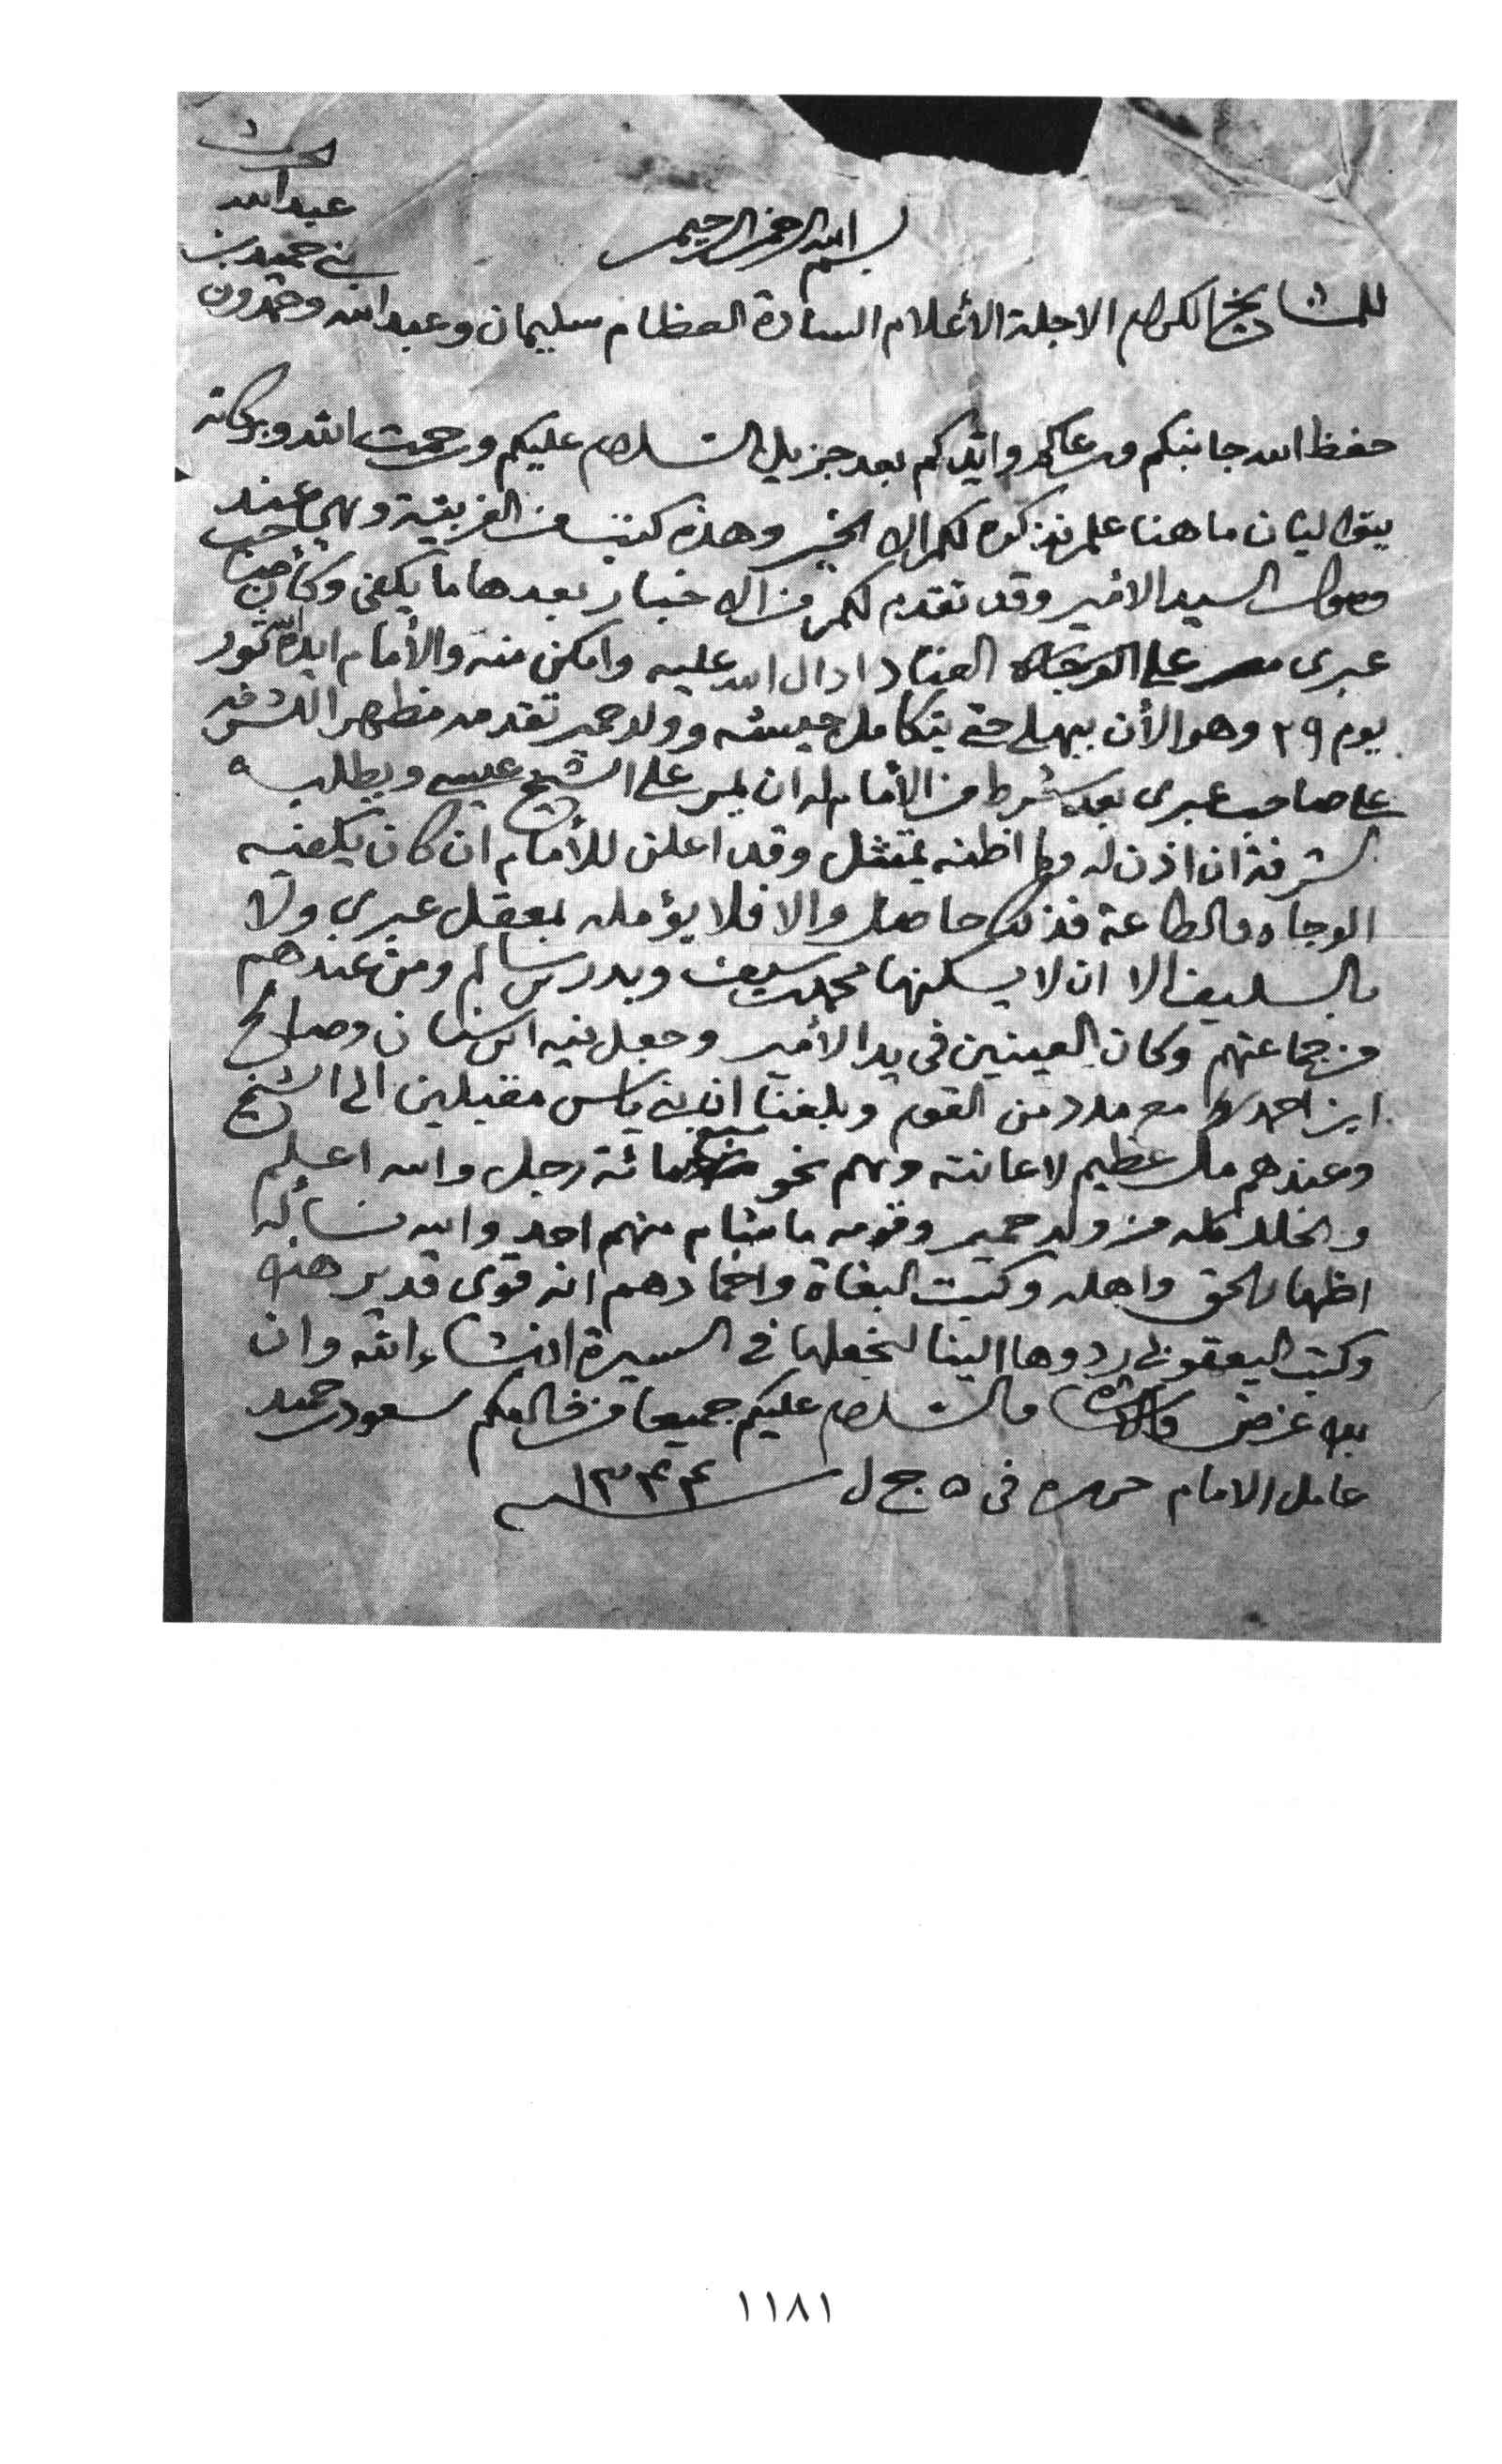 بسم الله الرحمن الرحيم
للمشايخ الكرام الاجلة الأعلام السادة العظام سليمان وعبدالله وحمدون
بني حميد بن
عبدالله
حفظ الله جانبكم ورعاكم وايدكم بعد جزيل السلام عليكم ورحمت الله وبركاته
ما هنا علم نذكره لكم الا الخير وهذه كتب من الغربية وهي عند
وصول السيد الامير وقد تقدم لكم من الاخبار بعدها ما يكفي وكأن صاحب
عبري مصر على العناد ادال الله عليه وامكن منه والأمام ايده الله
يوم ٢٩ وهو الأن ببهلى حتى يتكامل جيشه وولد حمير تقدمه مظهرا الشرفة
على صاحب عبري بعد شرط من الأمام له ان يمر على الشيخ عيسى ويطلبه
الشرفة ان اذن له وما اظنه يمتثل وقد اعلن للأمام ان كان يكفيه
الوجاه والطاعة فذلك حاصل والا فلا يؤمله بمعقل عبري ولا
بالسليف الا ان لا يسكنها محمد بن سيف وبدر بن سالم ومن عندهم
من جماعتهم وكان العينين في يد الأمير وجعل فيه ابن سنان وصالح
ابن احمد مع مدد من القوم وبلغنا ان بني ياس مقبلين الى الشيخ
وعندهم مال عظيم لاعانته وهم نحو مائة رجل والله اعلم
والخلل كله من ولد حمير وقومه ما منهم احد والله نسأله
اظهار الحق واهله وكبت البغاة واخمادهم انه قوي قدير هذه
وكتب اليعقوبي ردوها الينا لنجعلها في السيرة انشاء الله وان
بدا غرض والسلام عليكم جميعا من خالكم سعود بن حميد
عامل الامام حرره في ٥ ج ل سنة ١٣٤٤
١١٨١